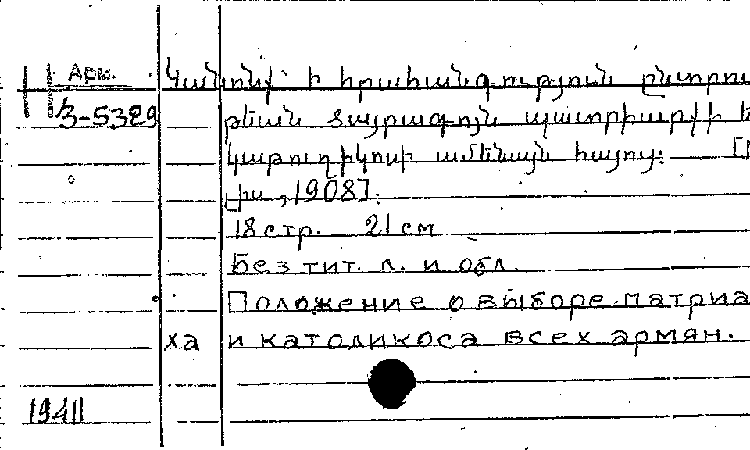 Арм. Կանոնք ի հրահանգություն ընտրու
3-5329 թեան Ծայրագոյն պատրիարքի և
կաթուղիկոսի ամենայն հայոց.
1908].
18 стр. 21 см
Без тит. л. и обл.
Положение о выборе патриа
ха и католикоса всех армян.